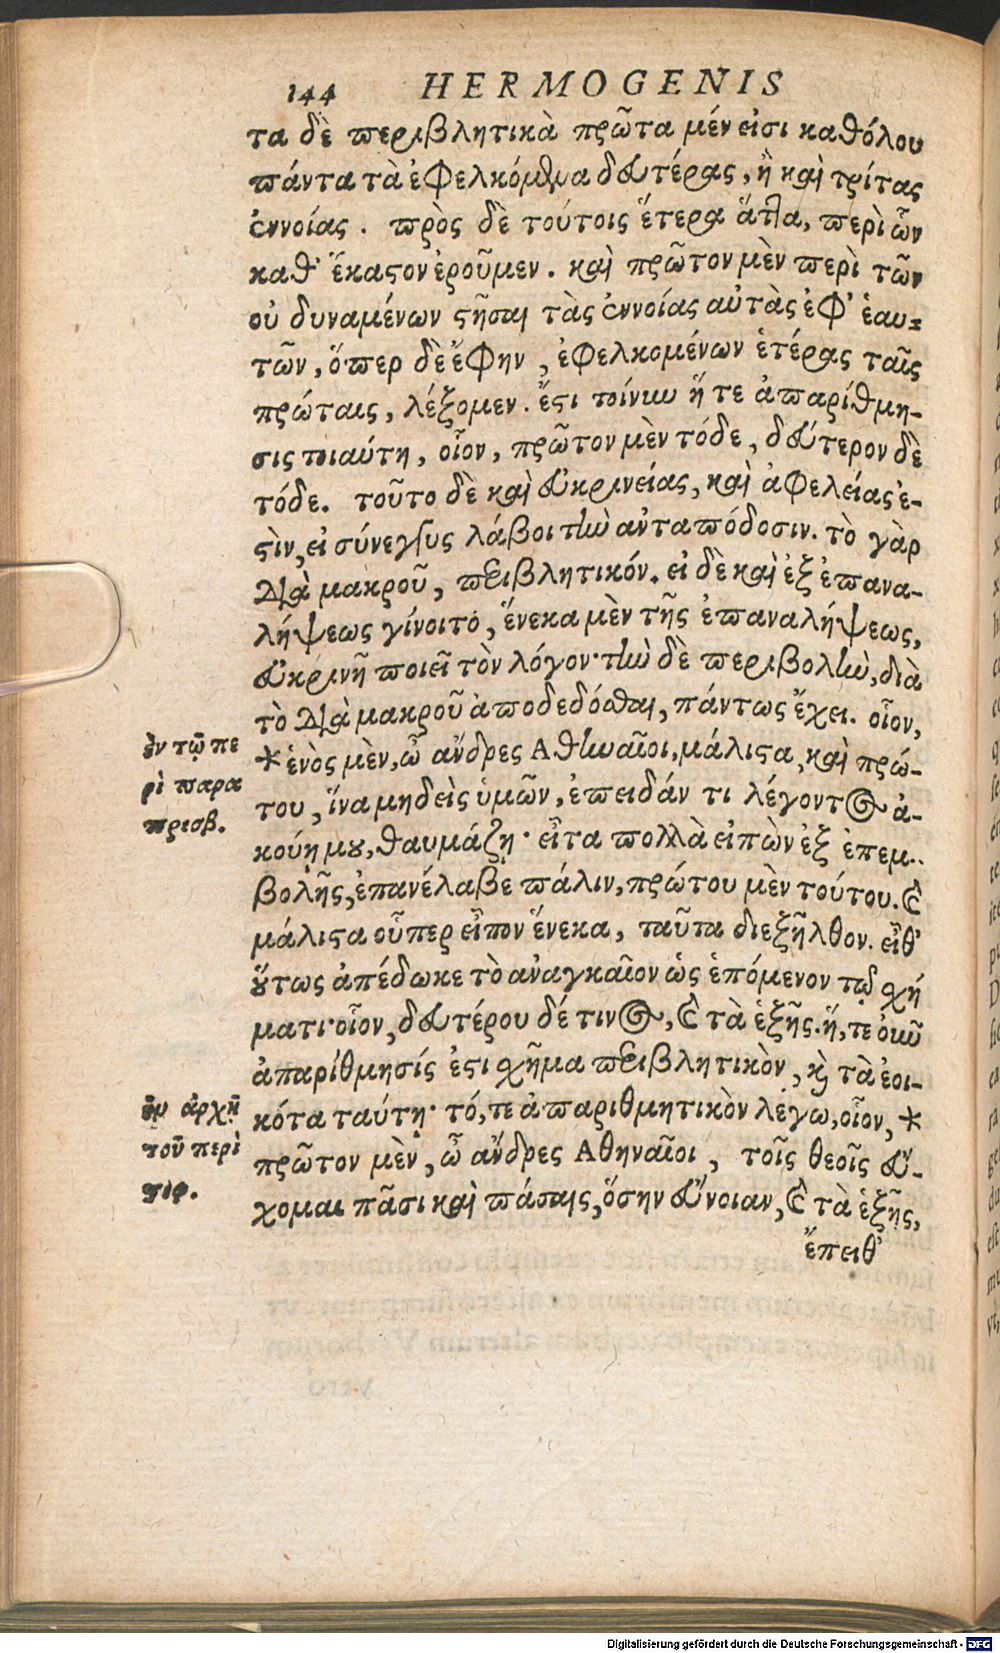 144 HERMOGENIS
τα δὲ περιβλητικὰ πρῶτα μέν εἰσι καθόλου
πάντα τὰ ἐφελκόμενα δευτέρας, ἢ καὶ τρίτας
ἐννοίας. πρὸς δὲ τούτοις ἕτερα ἅττα, περὶ ὧν
καθ' ἕκαστον ἐροῦμεν. καὶ πρῶτον μὲν περὶ τῶν
οὐ δυναμένων στῆσαι τὰς ἐννοίας αὐτὰς ἐφ' ἑαυ-
τῶν, ὅπερ δὲ ἔφην, ἐφελκομένων ἑτέρας ταῖς
πρώταις, λέξομεν. ἔστι τοίνυν ἥ τε ἀπαρίθμη-
σις τοιαύτη, οἷον, πρῶτον μὲν τόδε, δεύτερον δὲ
τόδε. τοῦτο δὲ καὶ εὐκρινείας, καὶ ἀφελείας ἐ-
στὶν, εἰ σύνεγγυς λάβοι τὴν ἀνταπόδοσιν. τὸ γὰρ
διὰ μακροῦ, περιβλητικόν. εἰ δὲ καὶ ἐξ ἐπανα-
λήψεως γίνοιτο, ἕνεκα μὲν τῆς ἐπαναλήψεως,
εὐκρινῆ ποιεῖ τὸν λόγον· τὴν δὲ περιβολὴν, διὰ
τὸ διὰ μακροῦ ἀποδεδόσθαι, πάντως ἔχει. οἷον,
* ἑνὸς μὲν, ὦ ἄνδρες Αθηναῖοι, μάλιστα, καὶ πρώ-
του, ἵνα μηδεὶς ὑμῶν, ἐπειδάν τι λέγοντος ἀ-
κούῃ μου, θαυμάζῃ· εἶτα πολλὰ εἰπὼν ἐξ ἐπεμ-
βολῆς, ἐπανέλαβε πάλιν, πρώτου μὲν τούτου. καὶ
μάλιστα οὗπερ εἶπον ἕνεκα, ταῦτα διεξῆλθον. εἶθ'
οὕτως ἀπέδωκε τὸ ἀναγκαῖον ὡς ἑπόμενον τῷ σχή
ματι· οἷον, δευτέρου δέ τινος, καὶ τὰ ἑξῆς. ἥ, τε οὖν
ἀπαρίθμησίς ἐστι σχῆμα περιβλητικὸν, καὶ τὰ ἐοι-
κότα ταύτῃ· τό, τε ἀπαριθμητικὸν λέγω, οἷον, *
πρῶτον μὲν, ὦ ἄνδρες Αθηναῖοι, τοῖς θεοῖς εὔ-
χομαι πᾶσι καὶ πάσαις, ὅσην εὔνοιαν, καὶ τὰ ἑξῆς,
ἔπειθ'
ἐν τῷ πε
ρὶ παρα
πρεσβ.
ἐν ἀρχῇ
τοῦ περὶ
στεφ.
Digitalisierung gefördert durch die Deutsche Forschungsgemeinschaft - DFG